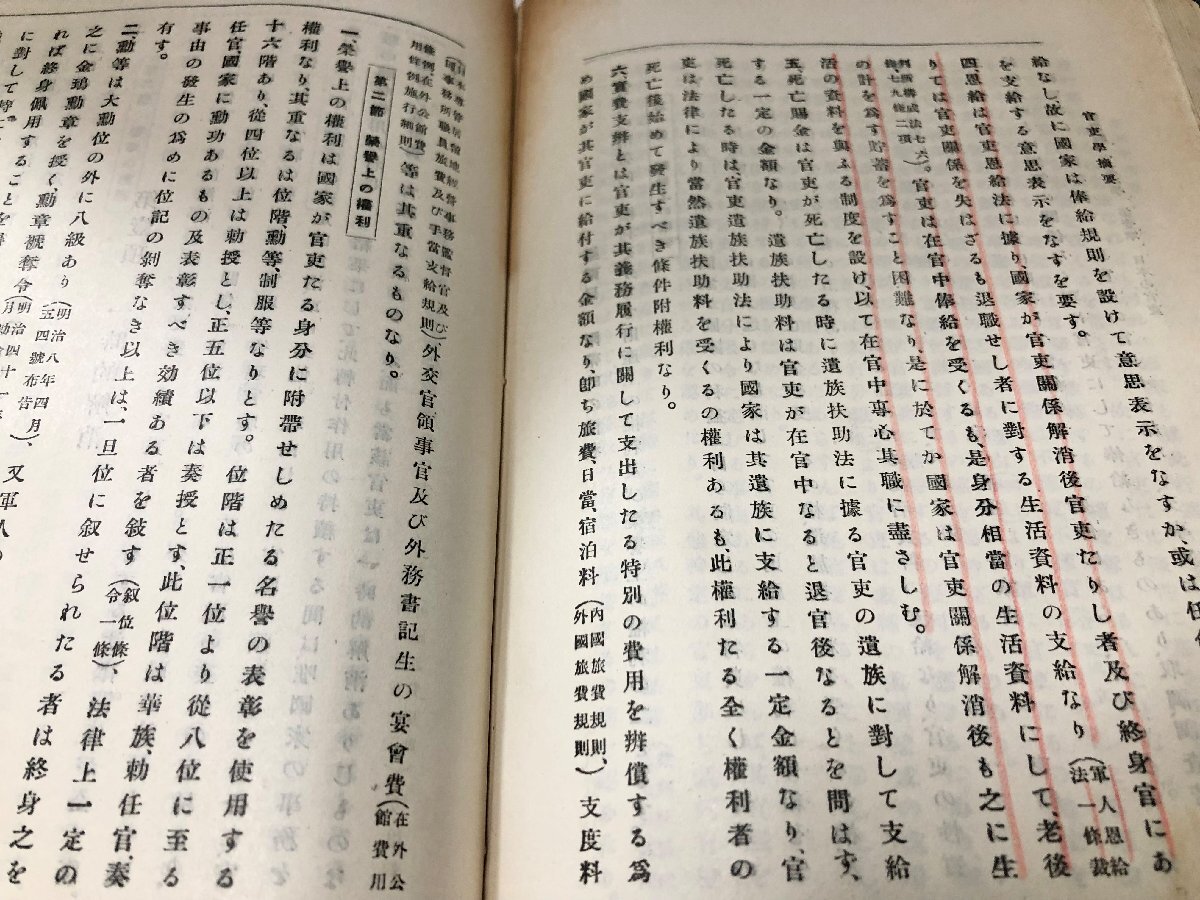 官吏學摘要
給なし故に國家は俸給規則を設けて意思表示をなすか、或は
を支給する意思表示をなすを要す。
四、恩給は官吏恩給法に據り、國家が官吏關係解消後官吏たりし者及び終身官にあ
りては官吏關係を失はざるも退職せし者に對する生活資料の支給なり(軍人恩給法一條裁
判所構成法七六、七九條二項)。官吏は在官中俸給を受くるも、是身分相當の生活資料にして、老後
の計を爲す貯蓄を爲すこと困難なり、是に於てか國家は官吏關係解消後も之に生
活の資料を與ふる制度を設け、以て在官中專心其職に盡さしむ。
五、死亡賜金は官吏が死亡したる時に遺族扶助法に據る官吏の遺族に對して支給
する一定の金額なり。遺族扶助料は官吏が在官中なると退官後なるとを問はず、
死亡したる時は、官吏遺族扶助法により國家は其遺族に支給する一定金額なり、官
吏は法律により當然遺族扶助料を受くるの權利あるも、此權利たる全く權利者の
死亡後始めて發生すべき條件附權利なり。
六、實費支辨とは官吏が其義務履行に關して支出したる特別の費用を辨償する爲
め國家が其官吏に給付する金額なり、卽ち旅費、日當、宿泊料(內國旅費規則、外國旅費規則)、支度料
同事務所職員旅費及び手當支給規則)外交官領事官及び外務書記生の宴會費(在外公館費用
條例在外公館費用條例施行規則)等は其重なるものなり。
第二節 榮譽上の權利
一、榮譽上の權利は國家が官吏たる身分に附帶せしめたる名譽の表彰を使用する
權利なり、其重なるは位階、勳等、制服等なりとす。位階は正一位より從八位に至る
十六階あり、從四位以上は勅授とし、正五位以下は奏授とす、此位階は華族、勅任官、奏
任官、國家に勳功あるもの及表彰すべき効績ある者を敍す(叙位條令一條)法律上一定の
事由の發生の爲めに位記の剝奪なき以上は、一旦位に叙せられたる者は終身之を
有す。
二、勳等は大勳位の外に八級あり(明治八年四月、五四號布告)
之に金鵄勳章を授く、勳章褫奪令(明治四十一年
れば終身佩用することを得
に對して